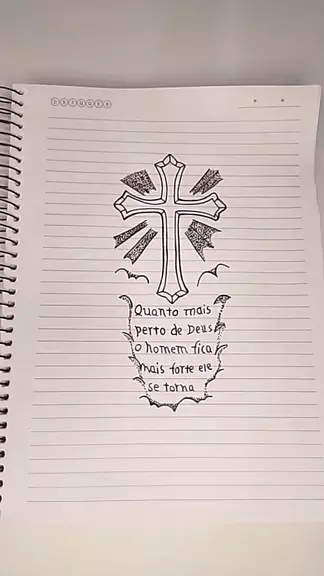 Quanto mais
perto de Deus
o homem fica
mais forte ele
se torna